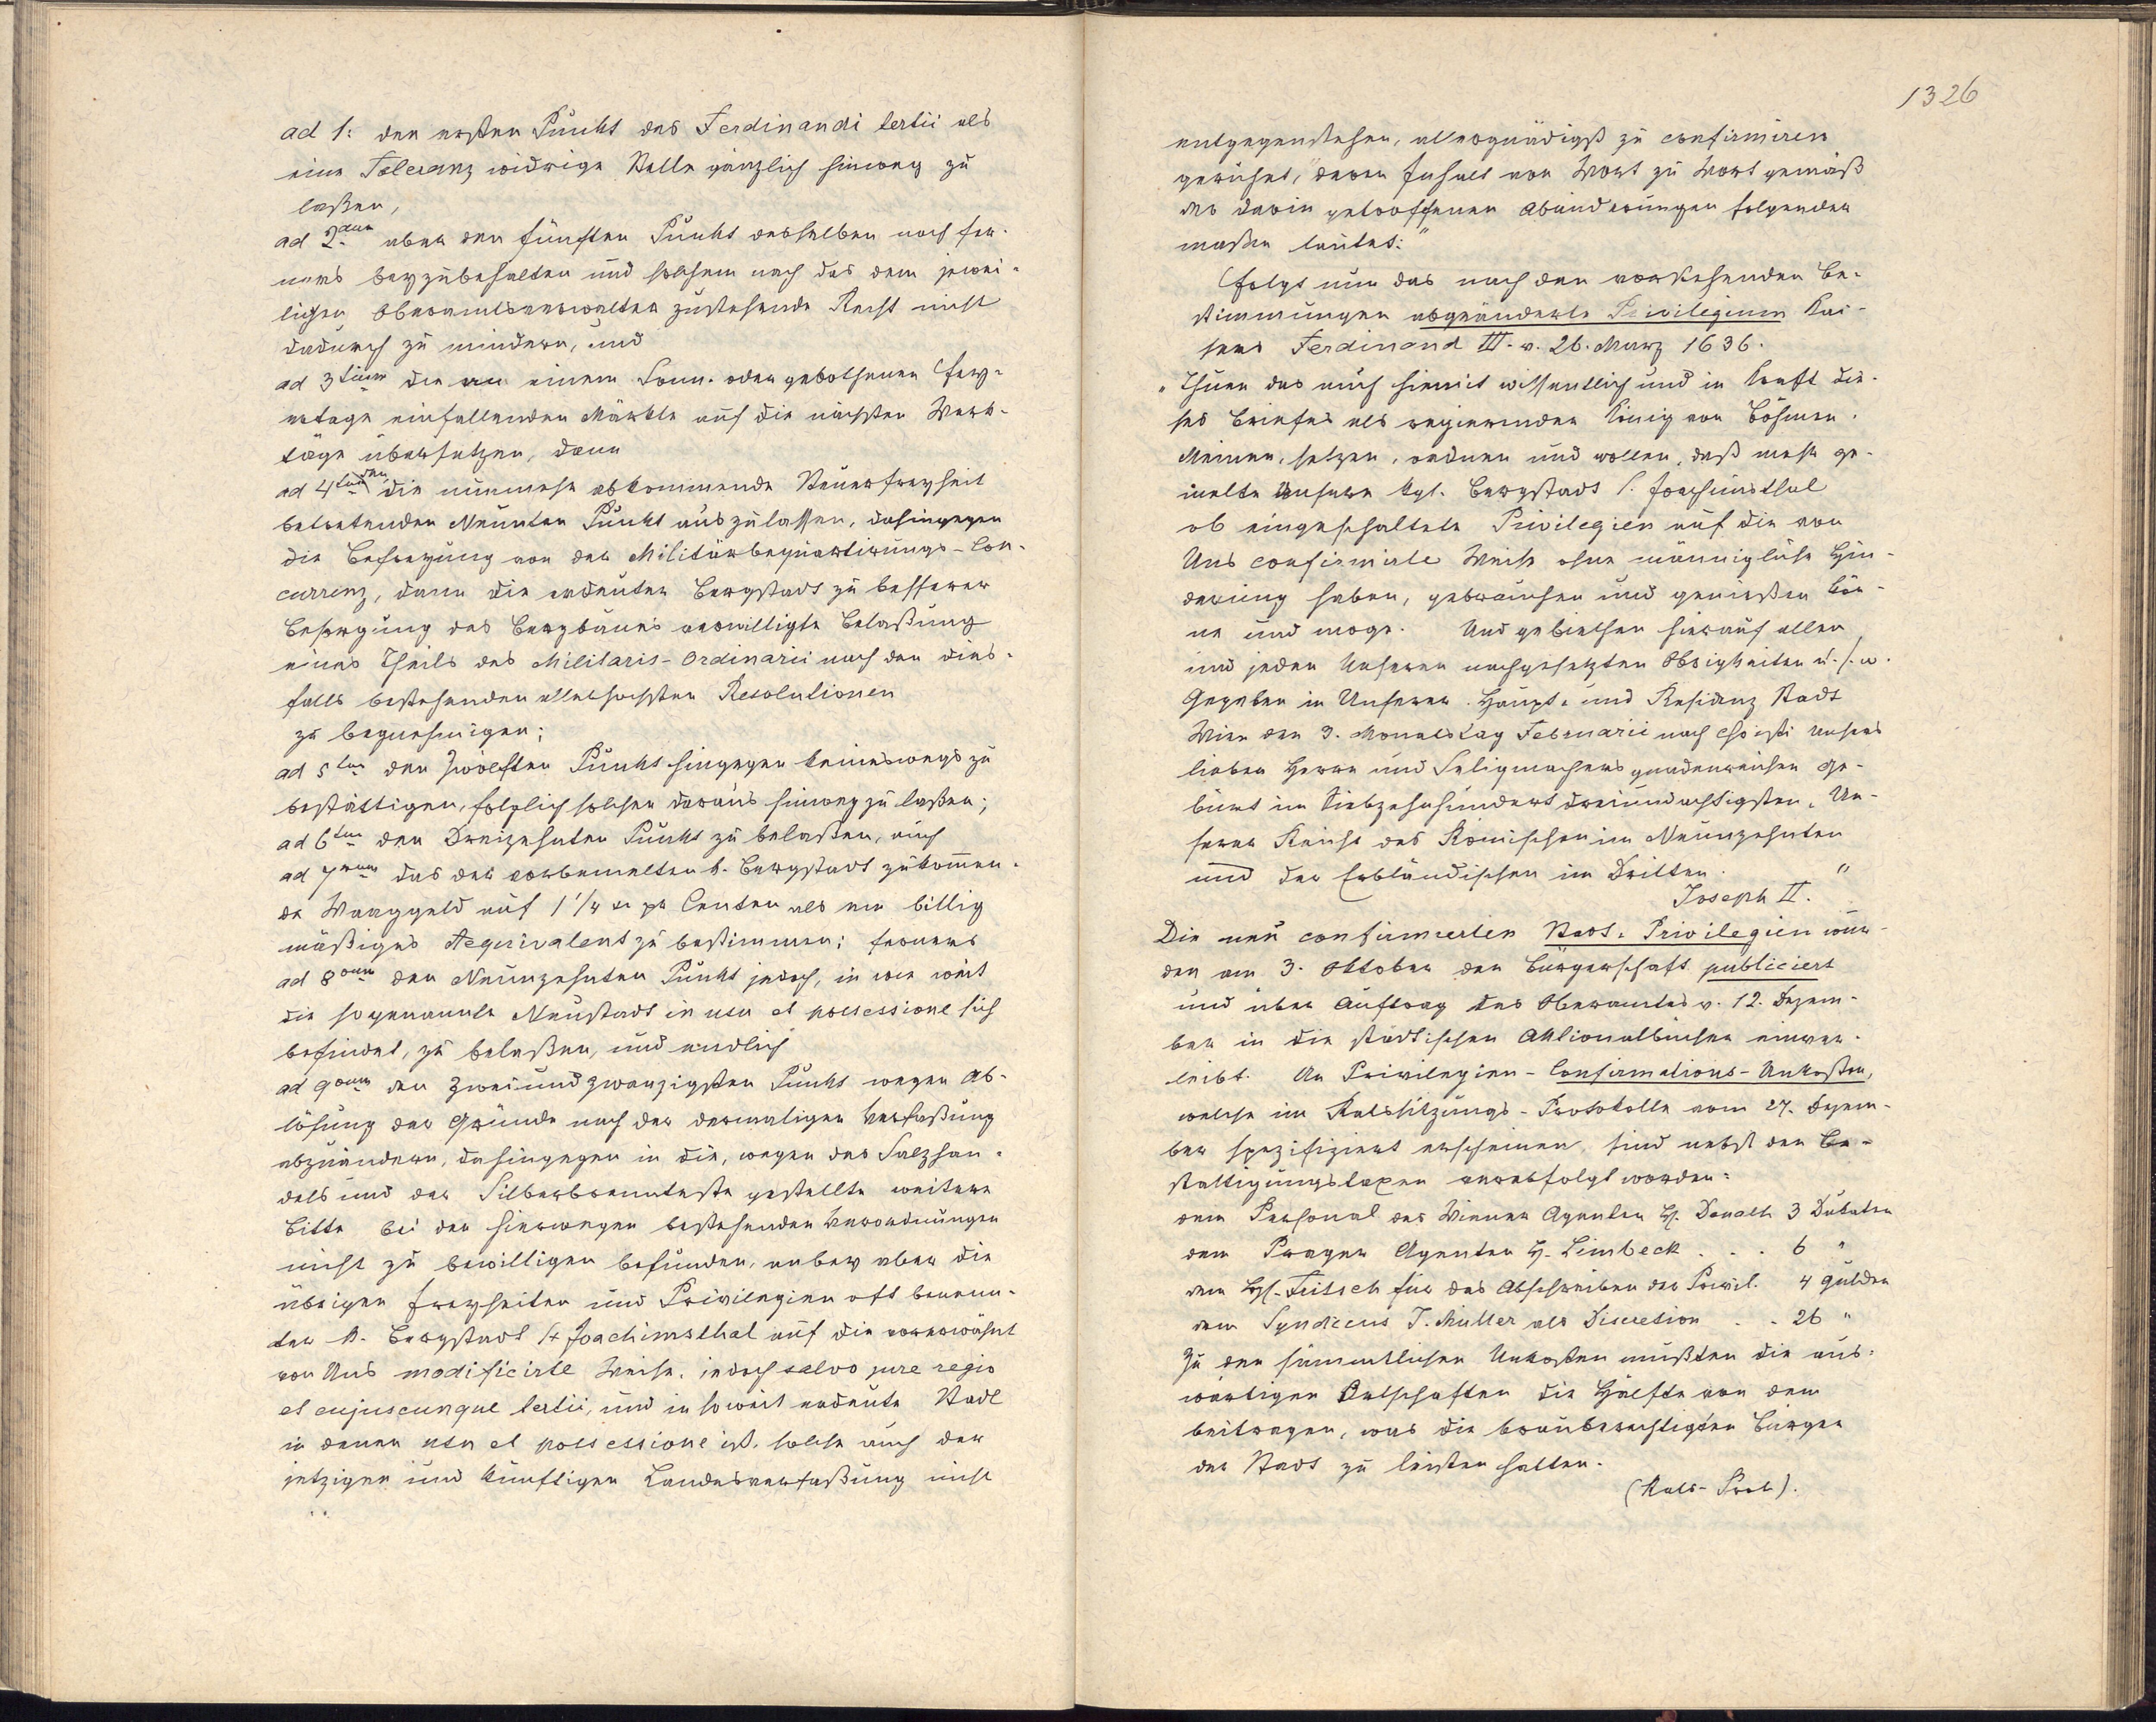 ad 1: den ersten Punkt des Ferdinandi tertii als
eine Toleranz widrige Stelle gänzlich hinweg zu
laßen,
ad 2dum aber den fünften Punkt desselben noch fer-
ners beyzubehalten und solchem nach das dem jewei-
ligen Oberamtsverwalter zustehende Recht nicht
dadurch zu mindern, und
ad 3tium die an einem Sonn- oder gebothenen Fey-
ertage einfallenden Märkte auf die nächsten Werk-
täge übersetzen, dann
ad 4tum den die nunmehr abkommende Steuerfreyheit
betretenden Neunten Punkt auszulassen, dahingegen
die Befreyung von der Militärbequartirungs-Con-
currenz, dann die erdeuten Bergstadt zu besserer
Besorgung des Bergbaues verwilligte Belaßung
eines Theils des Militaris-Ordinarii nach den dies-
falls bestehenden allerhochsten Resolutionen
zu begnehmigen;
ad 5tum den Zwölften Punkt hingegen keineswegs zu
bestättigen, folglich solchen daraus hinweg zu laßen;
ad 6tum den Dreizehnten Punkt zu belaßen, auch
ad 7mum das der vorbemelten k. Bergstadt zukommen-
de Waaggeld auf 1 1/4 xr pr Centen als ein billig
mäßiges Aequivalent zu bestimmen; ferners
ad 8vum den Neunzehnten Punkt jedoch, in wie weit
die sogenannte Neustadt in usu et possessione sich
befindet, zu belaßen, und endlich
ad 9num den Zweiundzwanzigsten Punkt wegen Ab-
lösung der Gründe nach der dermaligen Verfaßung
abzuändern, dahingegen in die, wegen des Salzhan-
dels und der Silberbrennteste gestellte weitere
Bitte bei den hierwegen bestehenden Verordnungen
nicht zu bewilligen befunden, anbey aber die
übrigen Freyheiten und Privilegien oft benenn-
ter k. Bergstadt St Joachimsthal auf die vorerwähnt
von Uns modificirte Weise, jedoch salvo jure regio
et cujuscunque tertii, und in soweit erdeute Stadt
in deren usu et possessione ist, solche auch der
jetzigen und künftigen Landesverfaßung nicht
1326
entgegenstehen, allergnädigst zu confirmiren
geruhet," deren Inhalt von Wort zu Wort gemäß
der darin getroffenen Abänderungen folgender
maßen lautet:"
(Folgt nun das nach den vorstehenden Be-
stimmungen abgeänderte Privilegium Kai-
sers Ferdinand III. v. 26. März 1636.
"Thuen das auch hiemit wissentlich und in Kraft die-
ses Briefes als regierender König von Böhmen.
Meinen, setzen, ordnen und wollen, daß mehr ge-
melte Unsere kgl. Bergstadt S. Joachimsthal
ob eingeschaltete Privilegien auf die von
Uns confirmirte Weise ohne männigliche Hin-
derung haben, gebrauchen und genießen kön-
ne und moge. Und gebiethen hierauf allen
und jeden Unseren nachgesetzten Obrigkeiten u. s. w.
Gegeben in Unserer Haupt- und Residenz Stadt
Wien den 3. Monatstag Februarii nach Christi unsers
lieben Herrn und Seligmachers gnadenreichen Ge-
burt im Siebzehnhundert dreiundachtigsten, Un-
serer Reiche des Römischen im Neunzehnten
und der Erbländischen im Dritten. "
Joseph II.
Die neu confirmierten Stadt-Privilegien wur-
den am 3. Oktober der Bürgerschaft publiciert
und über Auftrag des Oberamtes v. 12. Dezem-
ber in die städtischen Aktionalbücher einver-
leibt. An Privilegien-Confirmations-Unkosten,
welche im Ratssitzungs-Protokolle vom 27. Dezem-
ber spezifiziert erscheinen, sind nebst den Be-
stattigungstaxen verabfolgt worden:
dem Personal des Wiener Agenten H. Donath 3 Dukaten
dem Prager Agenten H. Limbeck . . . 6 "
dem H. Fritsch für das Abschreiben der Privil. 4 Gulden
dem Syndicus J. Müller als Discretion . . 26 "
Zu den sämmtlichen Unkosten mußten die aus-
wärtigen Ortschaften die Hälfte von dem
beitragen, was die brauberechtigten Bürger
der Stadt zu leisten hatten.
(Rats-Prot).